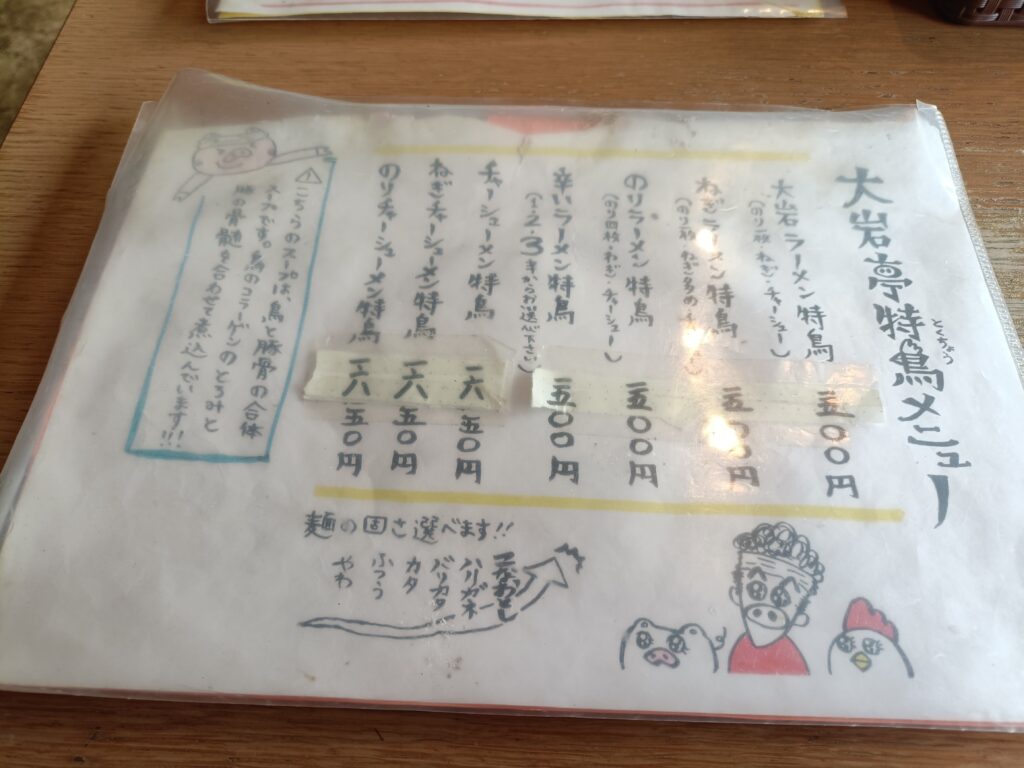 大岩亭特鳥メニュー
とくちょう
大岩ラーメン特鳥 一五〇〇円
(のり一枚 ねぎ・チャーシュー)
ねぎラーメン特鳥 一五〇〇円
(のり一枚 ねぎ多め
のりラーメン特鳥 一五〇〇円
(のり四枚 ねぎ・チャーシュー)
辛いラーメン特鳥 一五〇〇円
(1・2・3辛からお選び下さい)
チャーシューメン特鳥 一六五〇円
ねぎチャーシューメン特鳥 一六五〇円
のりチャーシューメン特鳥 一六五〇円
こちらのスープは、鳥と豚骨の合体
スープです。鳥のコラーゲンのとろみと
豚の骨髄を合わせて煮込んでいます!!
麺の固さ選べます!!
こなおとし
ハリガネ
バリカタ
カタ
ふつう
やわ